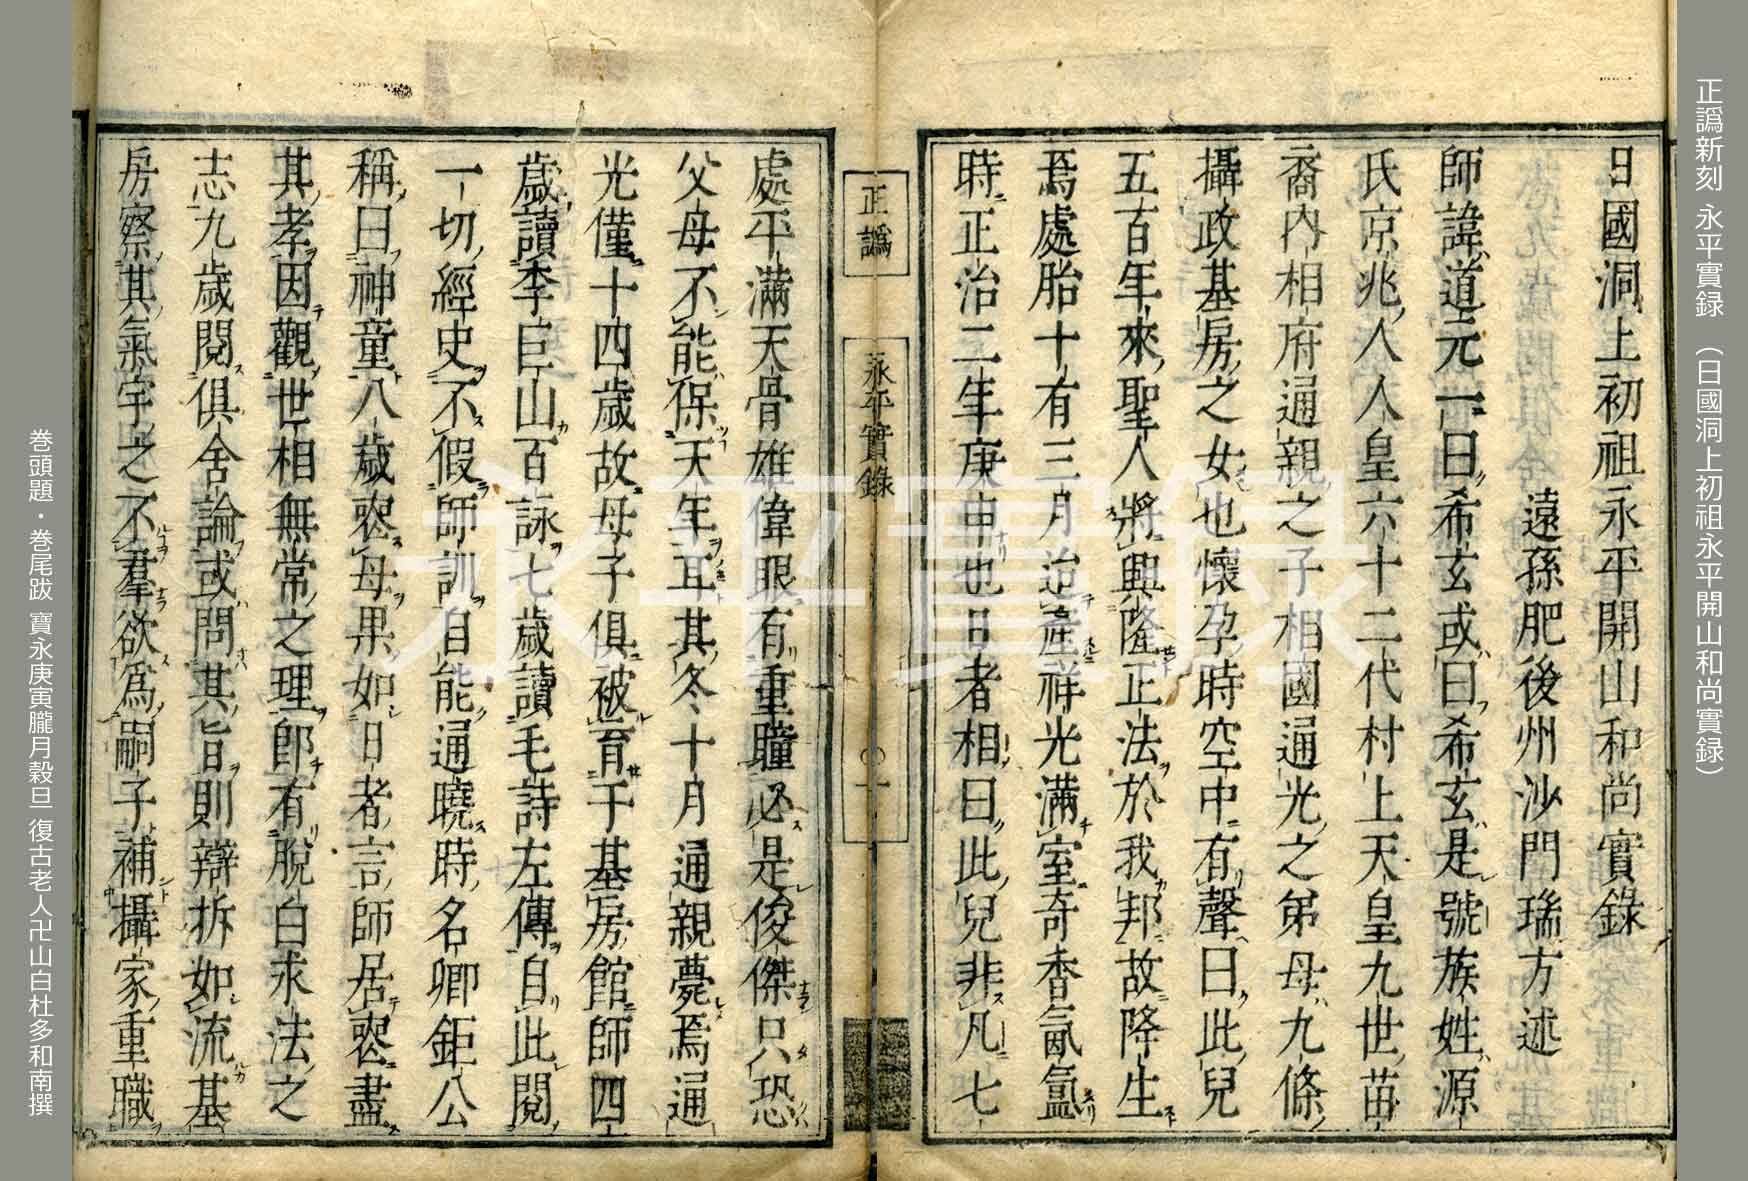 正譌新刻 永平實録 (日國洞上初祖永平開山和尚實録)
日國洞上初祖永平開山和尚實錄
遠孫肥後州沙門瑞方述
師諱道元一曰希玄或曰希玄是號族姓源
氏京兆人人皇六十二代村上天皇九世苗
裔內相府通親之子相國通光之弟母九條
攝政基房之女也懷孕時空中有聲曰此兒
五百年來聖人將興隆正法於我邦故降生
焉處胎十有三月迨產祥光滿室奇香氤氳
時正治二年庚申也日者相曰此兒非凡七
正譌
永平實錄
〇一
處平滿天骨雄偉眼有重瞳必是俊傑只恐
父母不能保天年耳其冬十月通親薨焉通
光僅十四歲故母子俱被育于基房館師四
歲讀李巨山百詠七歲讀毛詩左傳自此閱
一切經史不假師訓自能通曉時名卿鉅公
稱曰神童八歲喪母果如日者言師居喪盡
其孝因觀世相無常之理即有脫白求法之
志九歲閱俱舍論或問其旨則辯拆如流基
房察其氣宇之不羣欲爲嗣子補攝家重職
巻頭題・巻尾跋 寶永庚寅臘月穀旦 復古老人卍山白杜多和南撰
永平實録